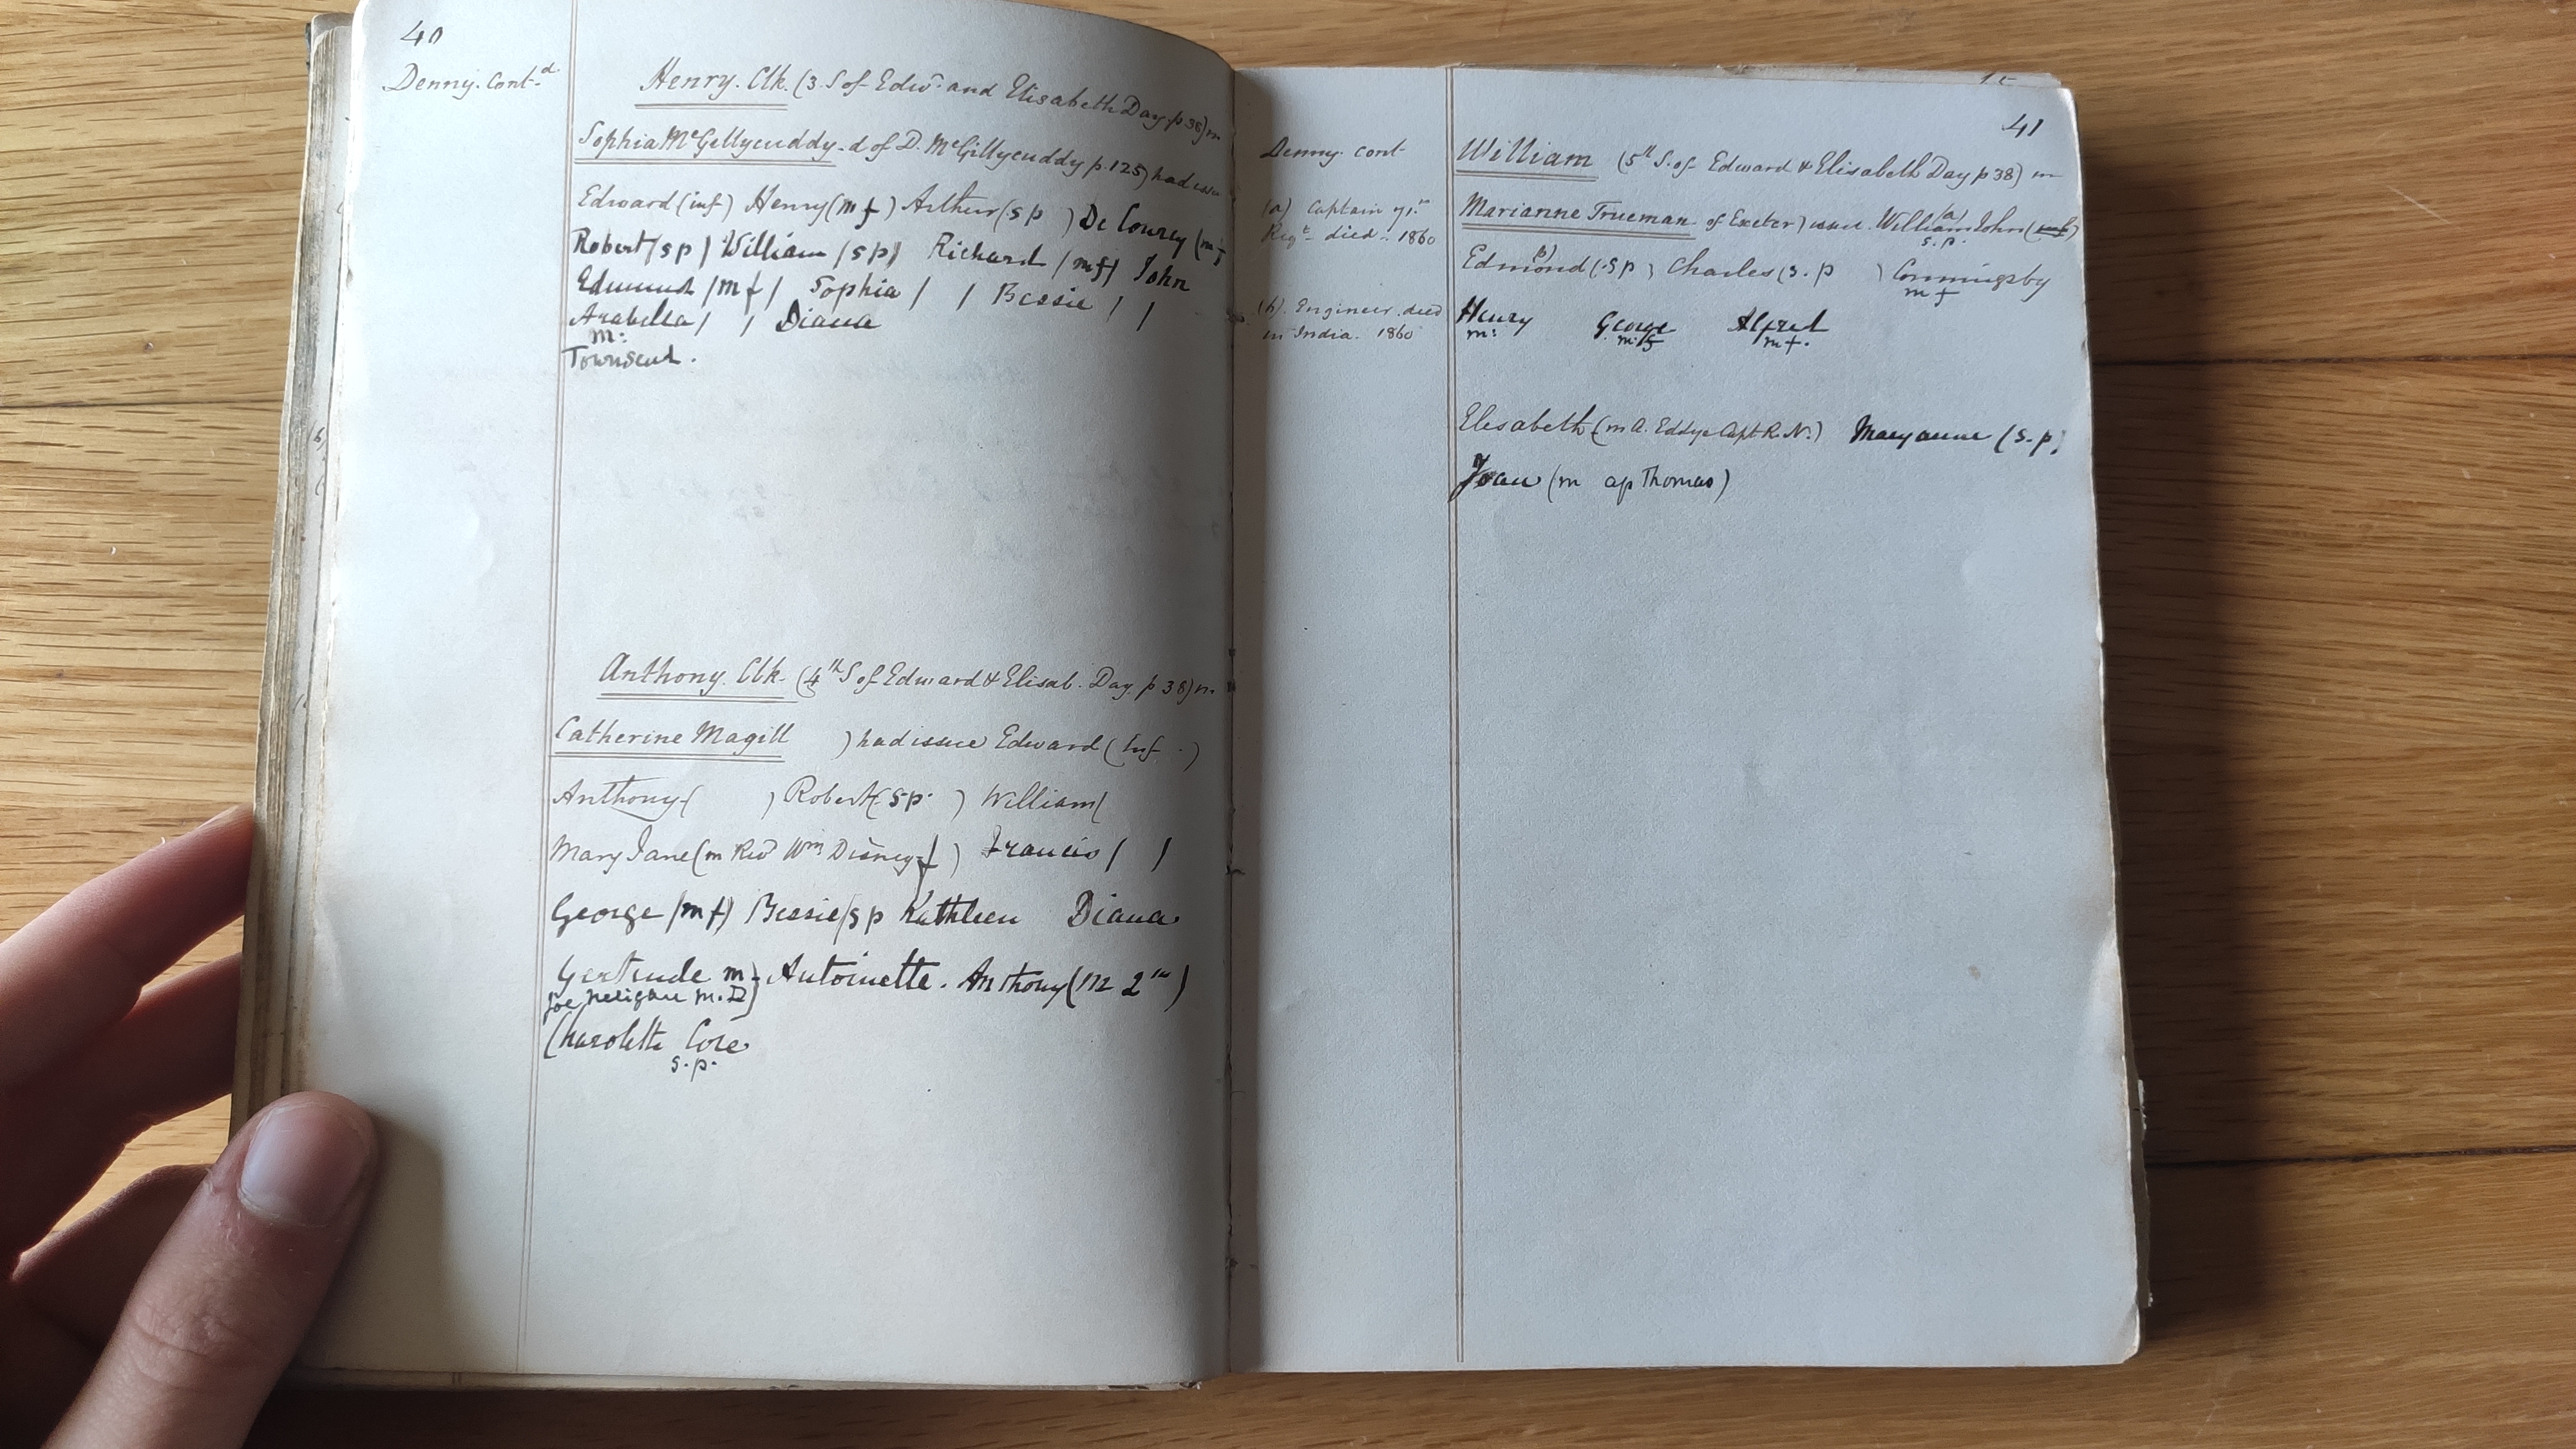 40
Denny. Cont.d
Henry. Clk. (3. S of Edwd. and Elisabeth Day. p 38) m
Sophia McGillycuddy. d of D. McGillycuddy p. 125) had issue
Edward (inf) Henry (m f) Arthur (s p ) De Courcy (m f
Robert (s p) William (s p) Richard (m f) John
Edmund (m f) Sophia ( ) Bessie ( )
Arabella ( ) Diana
m:
Townsend.
Anthony. Clk. (4th S of Edward & Elisab. Day. p 38) m
Catherine Magill ) had issue Edward (Inf. )
Anthony ( ) Robert (s.p. ) William (
Mary Jane (m Revd Wm Disney f ) Francis ( )
George (m f) Bessie (s p Kathleen Diana
Gertrude m. Antoinette. Anthony (m 2
Joe Neligan M.D)
Charolette Core
s. p.
41
Denny. Cont
(a) Captain 71.st
Regt. died. 1860
(b). Engineer. died
in India. 1860
William (5th S. of Edward & Elisabeth Day p 38) m
Marianne Trueman of Exeter) issue. William (a) John (
s. p.
Edmond (b) (s p ) Charles (s. p ) Conningsby
m f
Henry George Alfred
m: m: f m f.
Elisabeth (m A. Eddye Capt R. N.) Maryanne (s. p)
Joan (m ap Thomas)